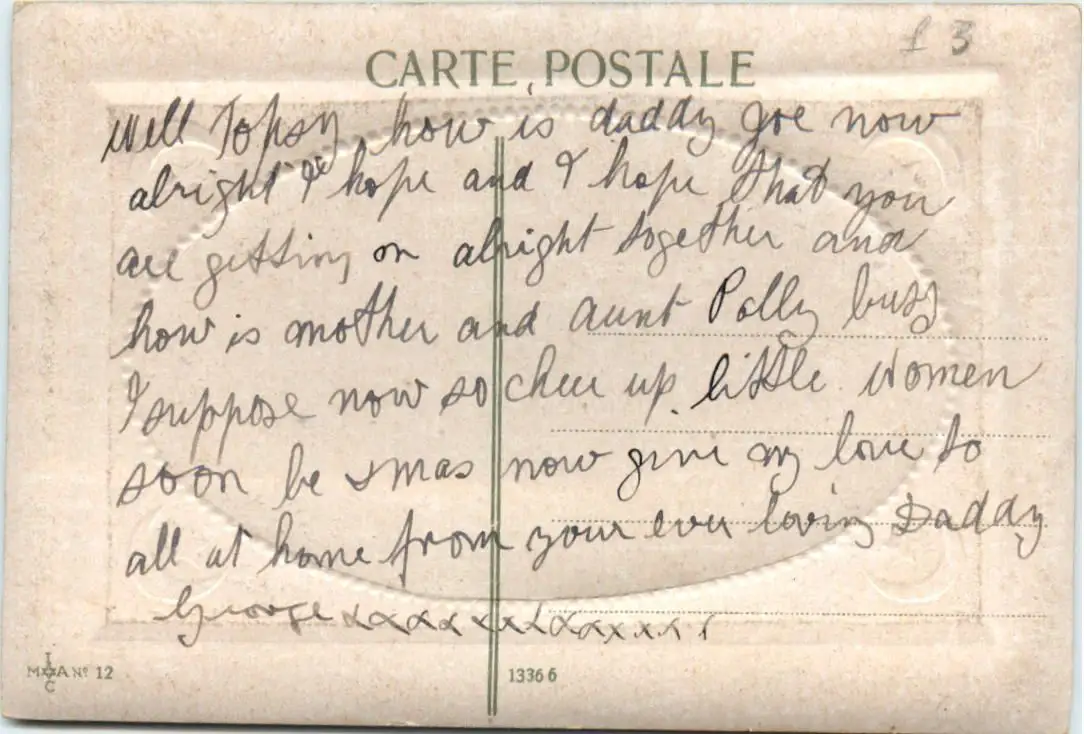 £ 3
CARTE POSTALE
Well Topsy how is daddy Joe now
alright I hope and I hope that you
are getting on alright together and
how is mother and aunt Polly busy
I suppose now so cheer up little women
soon be xmas now give my love to
all at home from your ever loving Daddy
George xxxxxxxxxxxxxx
M A No 12
13366